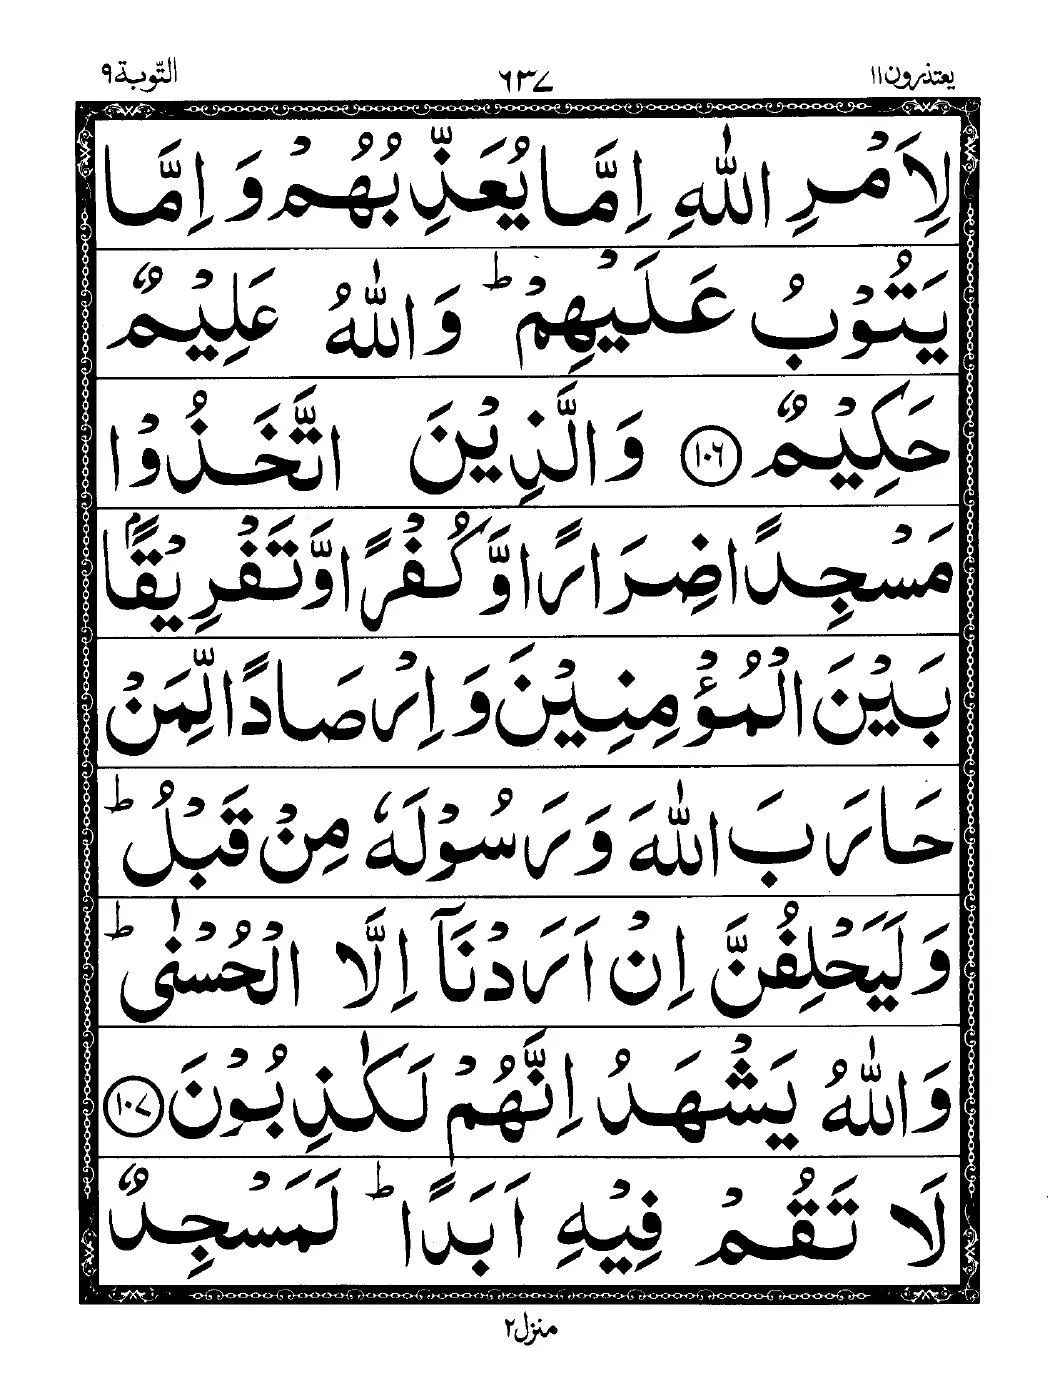 يعتذرون ١١
٦٣٧
التّوبة ٩
لِاَمْرِ اللّٰهِ اِمَّا يُعَذِّبُهُمْ وَ اِمَّا
يَتُوْبُ عَلَيْهِمْ ؕ وَ اللّٰهُ عَلِيْمٌ
حَكِيْمٌ ﴿۱۰۶﴾ وَ الَّذِيْنَ اتَّخَذُوْا
مَسْجِدًا ضِرَارًا وَّ كُفْرًا وَّ تَفْرِيْقًۢا
بَيْنَ الْمُؤْمِنِيْنَ وَ اِرْصَادًا لِّمَنْ
حَارَبَ اللّٰهَ وَ رَسُوْلَهٗ مِنْ قَبْلُ ؕ
وَ لَيَحْلِفُنَّ اِنْ اَرَدْنَاۤ اِلَّا الْحُسْنٰى ؕ
وَ اللّٰهُ يَشْهَدُ اِنَّهُمْ لَكٰذِبُوْنَ ﴿۱۰۷﴾
لَا تَقُمْ فِيْهِ اَبَدًا ؕ لَمَسْجِدٌ
منزل ٢